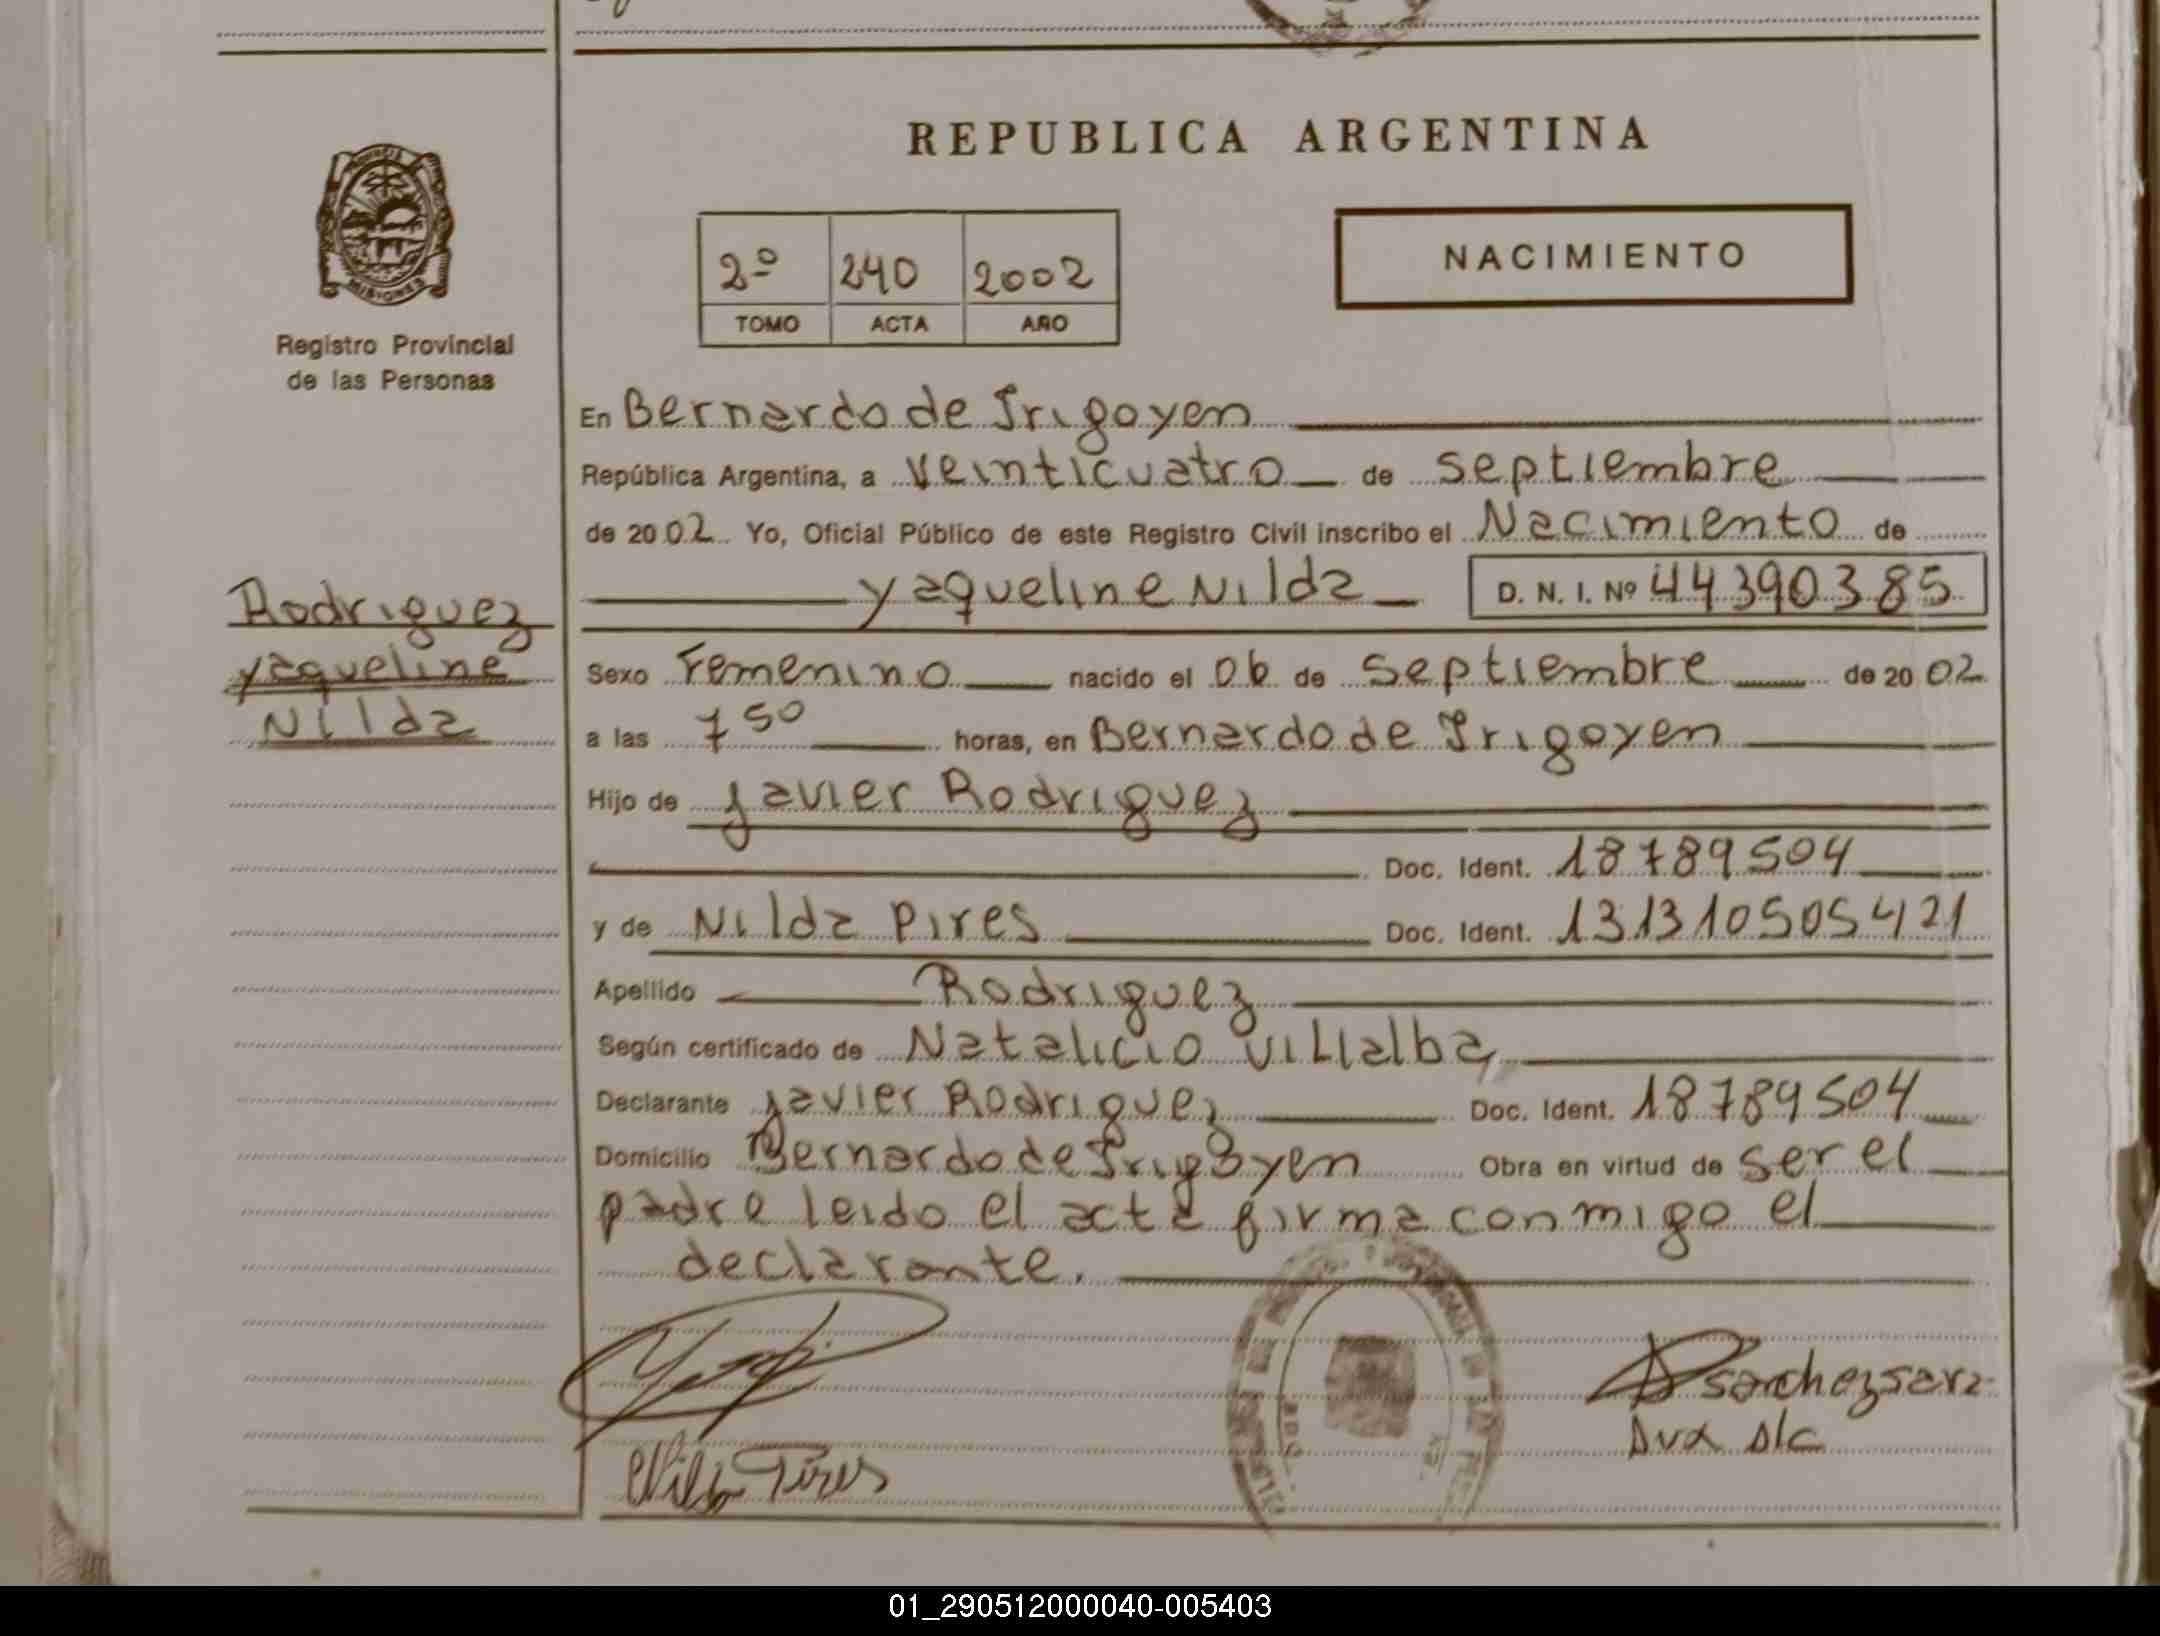 REPUBLICA ARGENTINA
NACIMIENTO
2º 240 2002
TOMO ACTA AÑO
MISIONES
Registro Provincial
de las Personas
Rodriguez
yaqueline
Nilda
En Bernardo de Irigoyen
República Argentina, a veinticuatro de septiembre
de 2002 Yo, Oficial Público de este Registro Civil inscribo el Nacimiento de
yaqueline Nilda D. N. I. Nº 44390385
Sexo Femenino nacido el 06 de septiembre de 2002
a las 7 50 horas, en Bernardo de Irigoyen
Hijo de Javier Rodriguez
Doc. Ident. 18789504
y de Nilda Pires Doc. Ident. 1313105054 21
Apellido Rodriguez
Según certificado de Natalicio Villalba
Declarante Javier Rodriguez Doc. Ident. 18789504
Domicilio Bernardo de Irigoyen Obra en virtud de ser el
padre leido el acta firma conmigo el
declarante.
Sanchez Sara
Nilda Pires
01_290512000040-005403